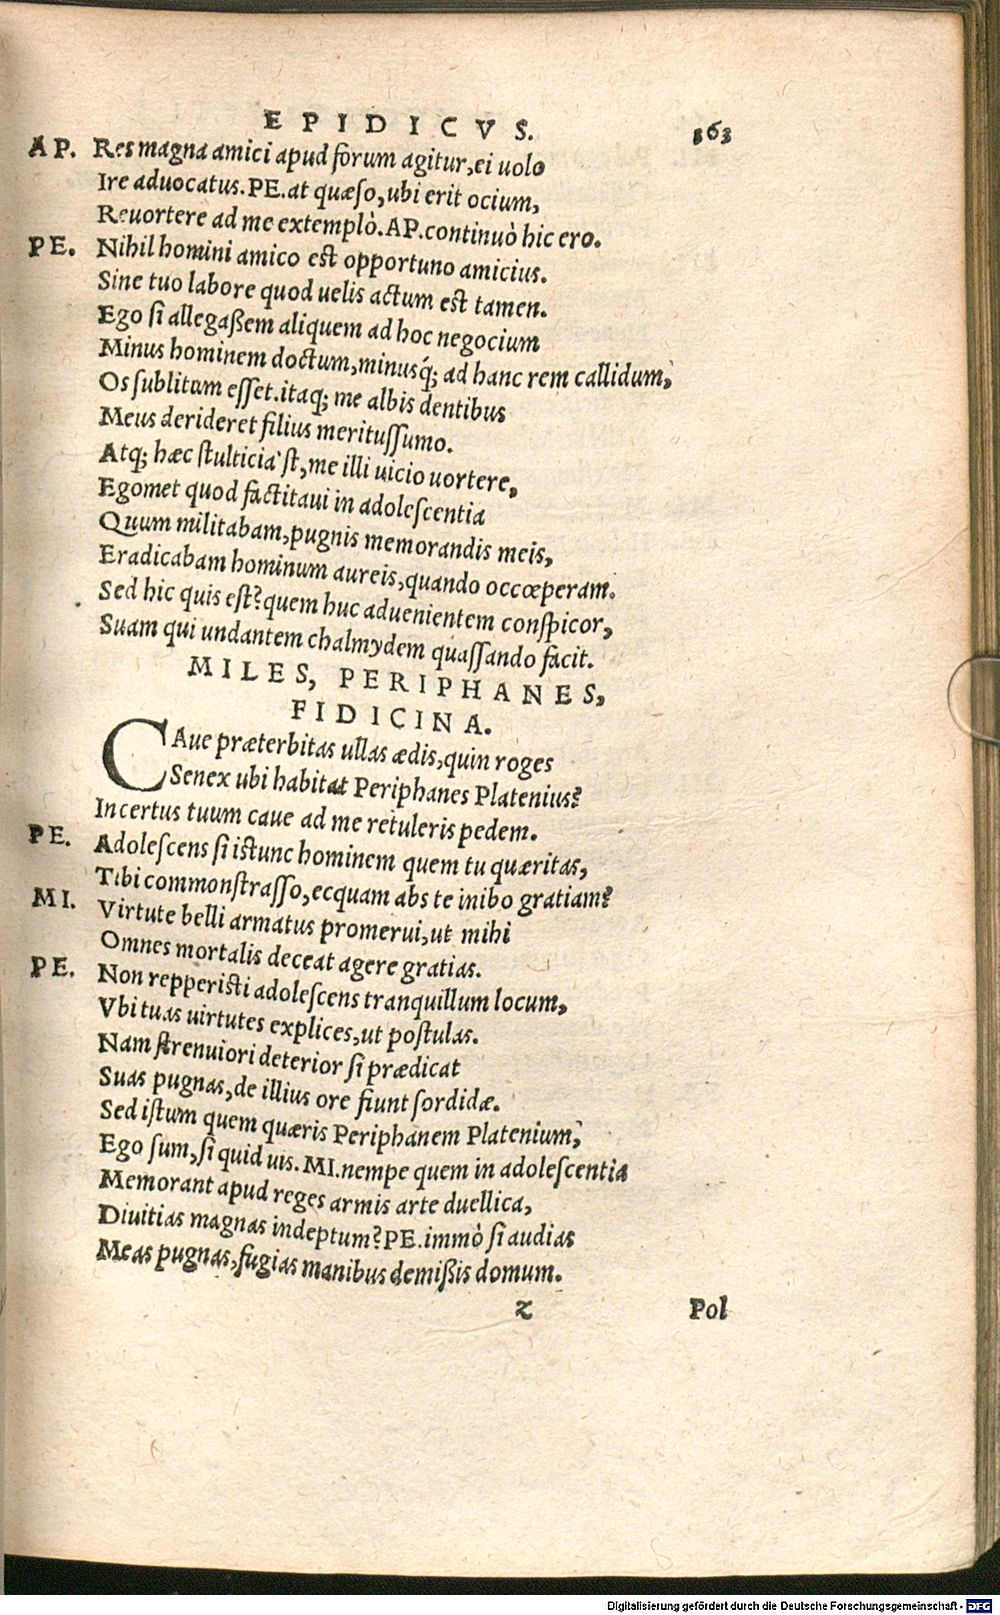 EPIDICVS. 363
AP. Res magna amici apud forum agitur, ei uolo
Ire aduocatus. PE. at quæso, ubi erit ocium,
Reuortere ad me extemplò. AP. continuò hic ero.
PE. Nihil homini amico est opportuno amicius.
Sine tuo labore quod uelis actum est tamen.
Ego si allegaßem aliquem ad hoc negocium
Minus hominem doctum, minusq́; ad hanc rem callidum,
Os sublitum esset. itaq; me albis dentibus
Meus derideret filius meritussumo.
Atq; hæc stulticia'st, me illi uicio uortere,
Egomet quod factitaui in adolescentia
Quum militabam, pugnis memorandis meis,
Eradicabam hominum aureis, quando occœperam.
Sed hic quis est? quem huc aduenientem conspicor,
Suam qui undantem chalmydem quassando facit.
MILES, PERIPHANES,
FIDICINA.
CAue præterbitas ullas ædis, quin roges
Senex ubi habitat Periphanes Platenius?
Incertus tuum caue ad me retuleris pedem.
PE. Adolescens si istunc hominem quem tu quæritas,
Tibi commonstrasso, ecquam abs te inibo gratiam?
MI. Virtute belli armatus promerui, ut mihi
Omnes mortalis deceat agere gratias.
PE. Non repperisti adolescens tranquillum locum,
Vbi tuas uirtutes explices, ut postulas.
Nam strenuiori deterior si prædicat
Suas pugnas, de illius ore fiunt sordidæ.
Sed istum quem quæris Periphanem Platenium,
Ego sum, si quid uis. MI. nempe quem in adolescentia
Memorant apud reges armis arte duellica,
Diuitias magnas indeptum? PE. immò si audias
Meas pugnas, fugias manibus demißis domum.
z Pol
Digitalisierung gefördert durch die Deutsche Forschungsgemeinschaft - DFG